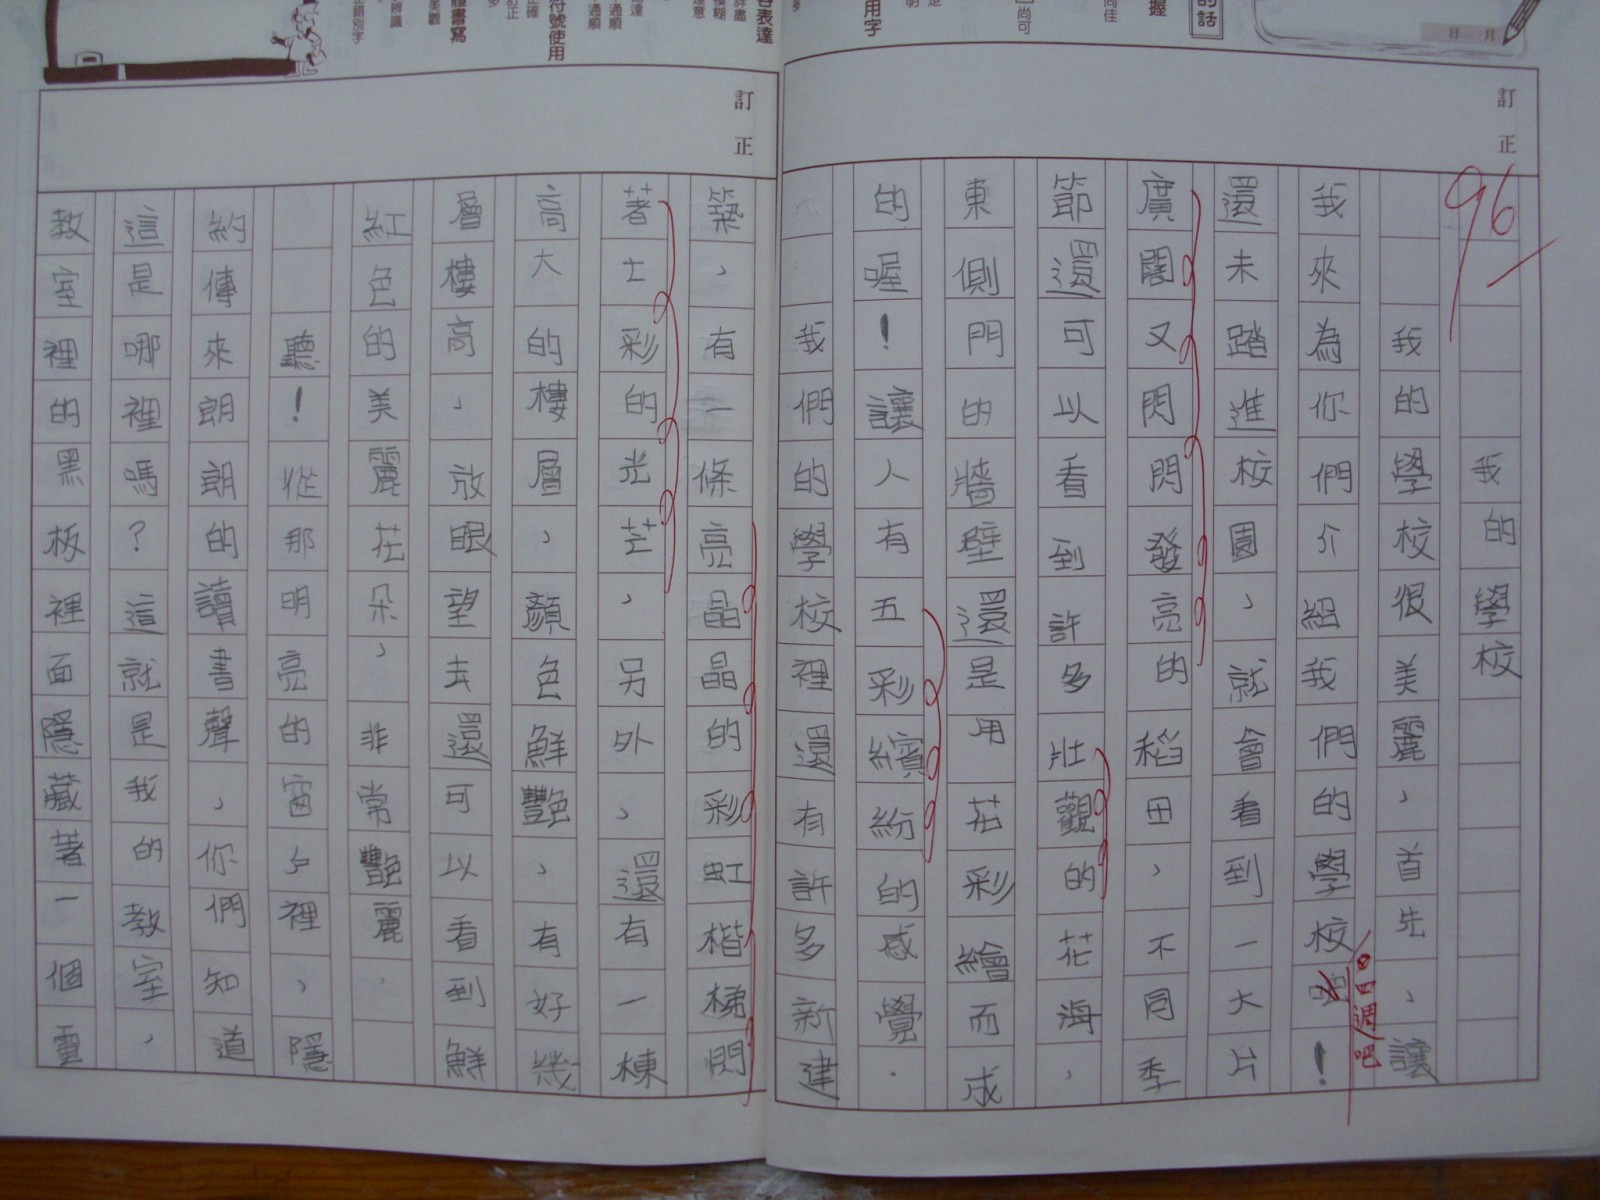 訂正
96
我的學校
我的學校很美麗，首先，讓
我來為你們介紹我們的學校吧！
還未踏進校園，就會看到一大片
廣闊又閃閃發亮的稻田，不同季
節還可以看到許多壯觀的花海，
東側門的牆壁還是用花彩繪而成
的喔！讓人有五彩繽紛的感覺。
我們的學校裡還有許多新建
訂正
築，有一條亮晶晶的彩虹楷梯閃
著士彩的光芒，另外，還有一棟
高大的樓層，顏色鮮豔，有好幾
層樓高，放眼望去還可以看到鮮
紅色的美麗花朵，非常艷麗。
聽！從那明亮的窗子裡，隱
約傳來朗朗的讀書聲，你們知道
這是哪裡嗎？這就是我的教室，
教室裡的黑板裡面隱藏著一個電